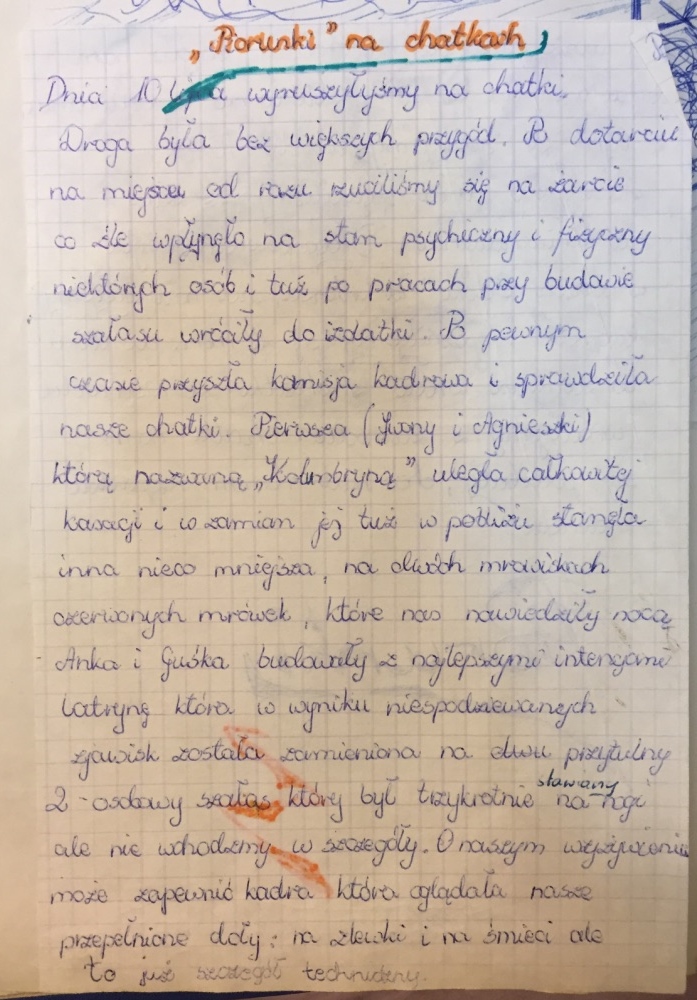 „Piorunki” na chatkach
Dnia 10 lipca wyruszyłyśmy na chatki.
Droga była bez większych przygód. P dotarciu
na miejsce od razu rzuciliśmy się na żarcie
co źle wpłynęło na stan psychiczny i fizyczny
niektórych osób i tuż po pracach przy budowie
szałasu wróciły do izdatki. P pewnym
czasie przyszła komisja kadrowa i sprawdziła
nasze chatki. Pierwsza (Iwony i Agnieszki)
którą nazwaną „Kolumbryną” uległa całkowitej
kasacji i w zamian jej tuż w pobliżu stanęła
inna nieco mniejsza, na dwóch mrowiskach
czerwonych mrówek, które nas nawiedziły nocą
Anka i Guśka budowały z najlepszymi intencjami
latrynę która w wyniku niespodziewanych
zjawisk została zamieniona na dwu przytulny
2-osobowy szałas, który był trzykrotnie stawiany na nogi
ale nie wchodźmy w szczegóły. O naszym wyżywieniu
może zapewnić kadra która oglądała nasze
przepełnione doły: na zlewki i na śmieci ale
to już szczegół techniczny.